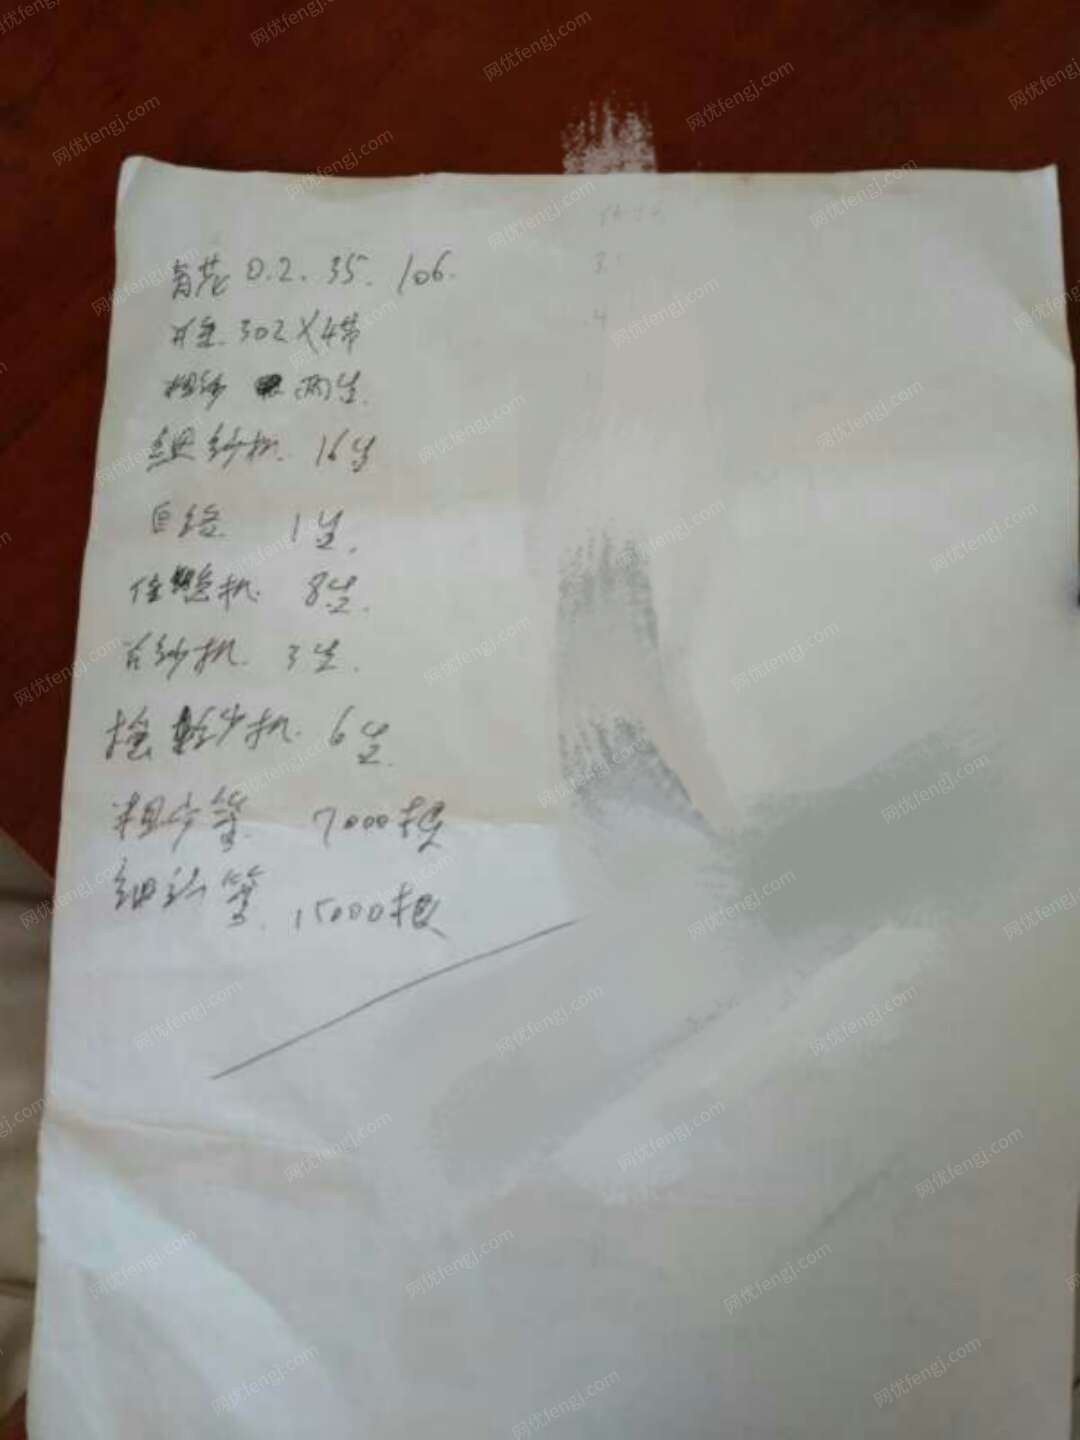 青花 0.2. 35. 106.
并条. 302X4节
粗纱 两台.
细纱机. 16台
自络. 1台.
倍捻机. 8台.
并纱机. 3台.
摇纱机. 6台.
粗纱管. 7000根
细纱管. 15000根
网优fengj.com